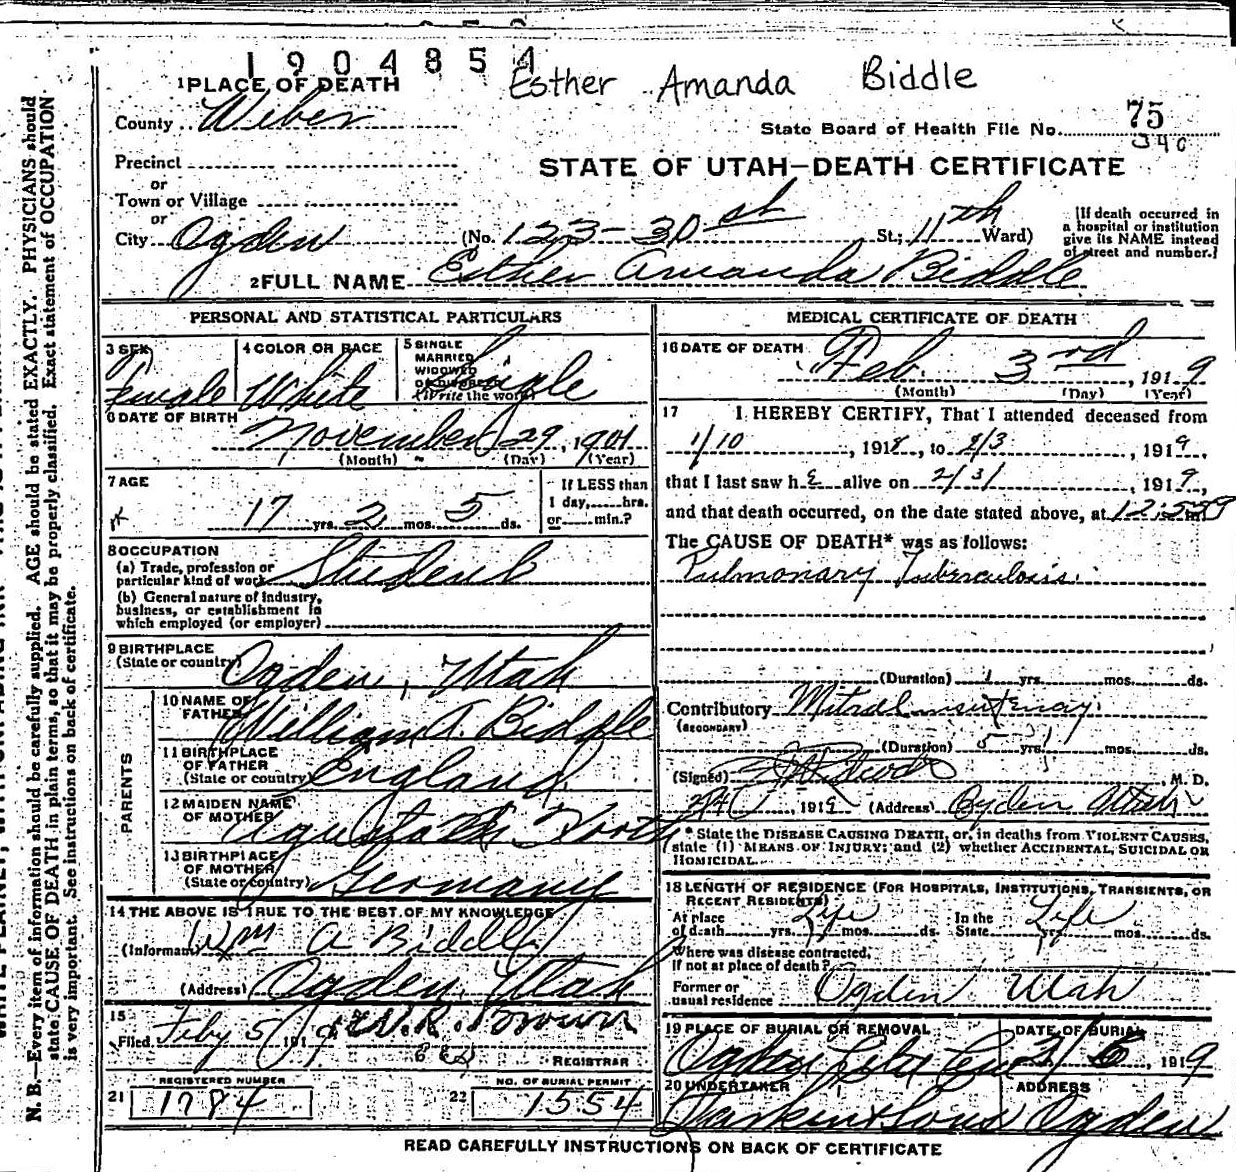 1904854
Esther Amanda Biddle
1 PLACE OF DEATH
County Weber
State Board of Health File No. 75
340
Precinct
or
STATE OF UTAH—DEATH CERTIFICATE
Town or Village
or
City Ogden (No. 123-30 st St.; 11th Ward)
[If death occurred in a hospital or institution give its NAME instead of street and number.]
2 FULL NAME Esther Amanda Biddle
PERSONAL AND STATISTICAL PARTICULARS
3 SEX Female
4 COLOR OR RACE White
5 SINGLE MARRIED WIDOWED OR DIVORCED (Write the word) Single
6 DATE OF BIRTH
November 29, 1901
(Month) (Day) (Year)
7 AGE
17 yrs. 2 mos. 5 ds.
If LESS than 1 day, hrs. or min.?
8 OCCUPATION
(a) Trade, profession or particular kind of work Student
(b) General nature of industry, business, or establishment in which employed (or employer)
9 BIRTHPLACE
(State or country) Ogden, Utah
PARENTS
10 NAME OF FATHER William T. Biddle
11 BIRTHPLACE OF FATHER (State or country) England
12 MAIDEN NAME OF MOTHER
13 BIRTHPLACE OF MOTHER (State or country) Germany
14 THE ABOVE IS TRUE TO THE BEST OF MY KNOWLEDGE
(Informant) Wm A Biddle
(Address) Ogden, Utah
15
Filed Feby 5 191 9 W.R. Brown
REGISTRAR
REGISTERED NUMBER
21 1784
NO. OF BURIAL PERMIT
22 1554
MEDICAL CERTIFICATE OF DEATH
16 DATE OF DEATH Feb. 3rd, 1919
(Month) (Day) (Year)
17 I HEREBY CERTIFY, That I attended deceased from
1/10, 1918, to 2/3, 1919,
that I last saw her alive on 2/3/, 1919,
and that death occurred, on the date stated above, at
The CAUSE OF DEATH* was as follows:
Pulmonary Tuberculosis.
(Duration) 1 yrs. mos. ds.
Contributory Mitral
(SECONDARY)
(Duration) 5 yrs. mos. ds.
(Signed) M. D.
1919 (Address) Ogden Utah
* State the DISEASE CAUSING DEATH, or, in deaths from VIOLENT CAUSES,
state (1) MEANS OF INJURY; and (2) whether ACCIDENTAL, SUICIDAL OR
HOMICIDAL.
18 LENGTH OF RESIDENCE (FOR HOSPITALS, INSTITUTIONS, TRANSIENTS, OR
RECENT RESIDENTS)
At place of death Life yrs. mos. ds. In the State Life yrs. mos. ds.
Where was disease contracted,
if not at place of death?
Former or usual residence Ogden Utah
19 PLACE OF BURIAL OR REMOVAL
Ogden City Cem
DATE OF BURIAL
2/6, 1919
20 UNDERTAKER
Larkin & Sons
ADDRESS
Ogden
READ CAREFULLY INSTRUCTIONS ON BACK OF CERTIFICATE
N. B.—Every item of information should be carefully supplied. AGE should be stated EXACTLY. PHYSICIANS should
state CAUSE OF DEATH in plain terms, so that it may be properly classified. Exact statement of OCCUPATION
is very important. See instructions on back of certificate.